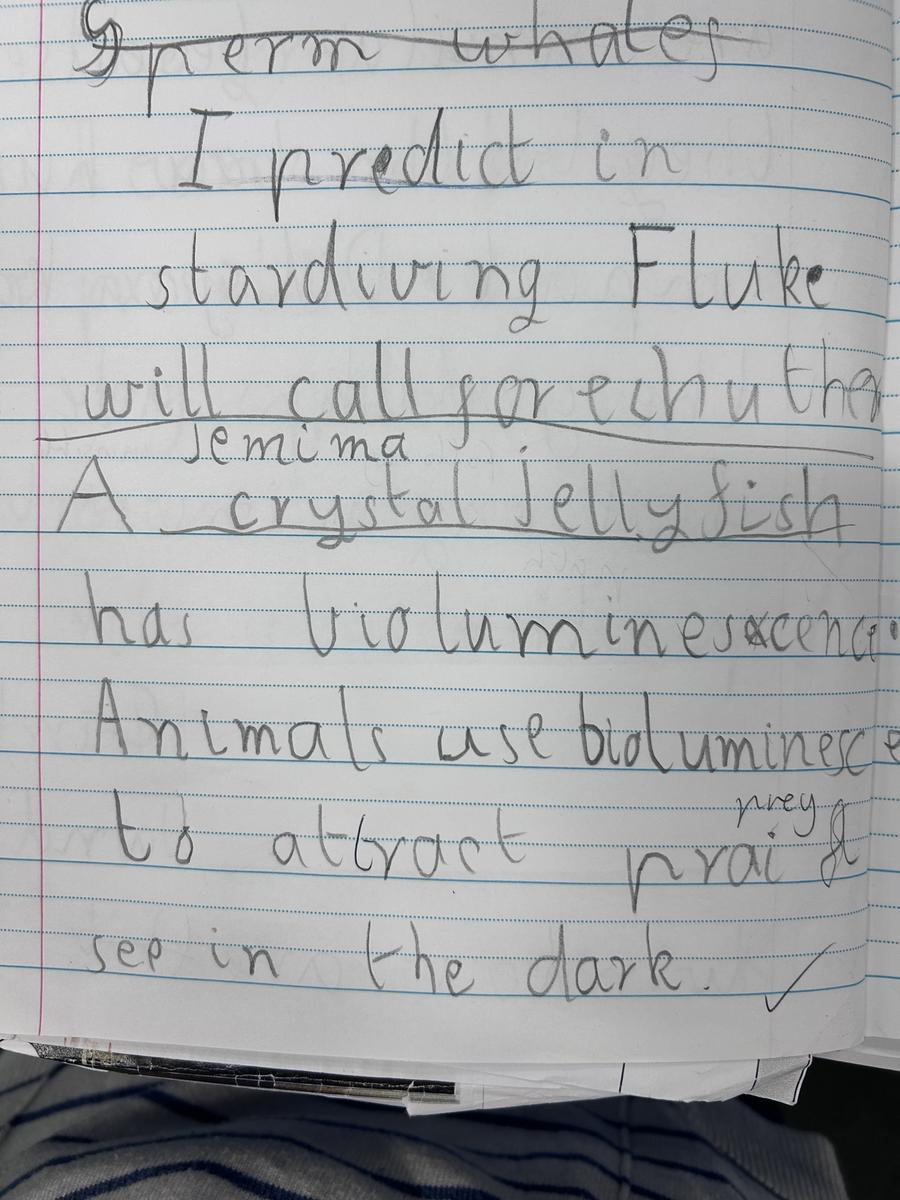 Sperm whales
I predict in
stardiving Fluke
will call for echuther
Jemima
A crystal jellyfish
has bioluminescence.
Animals use bioluminesce
prey
to attract prai &
see in the dark.